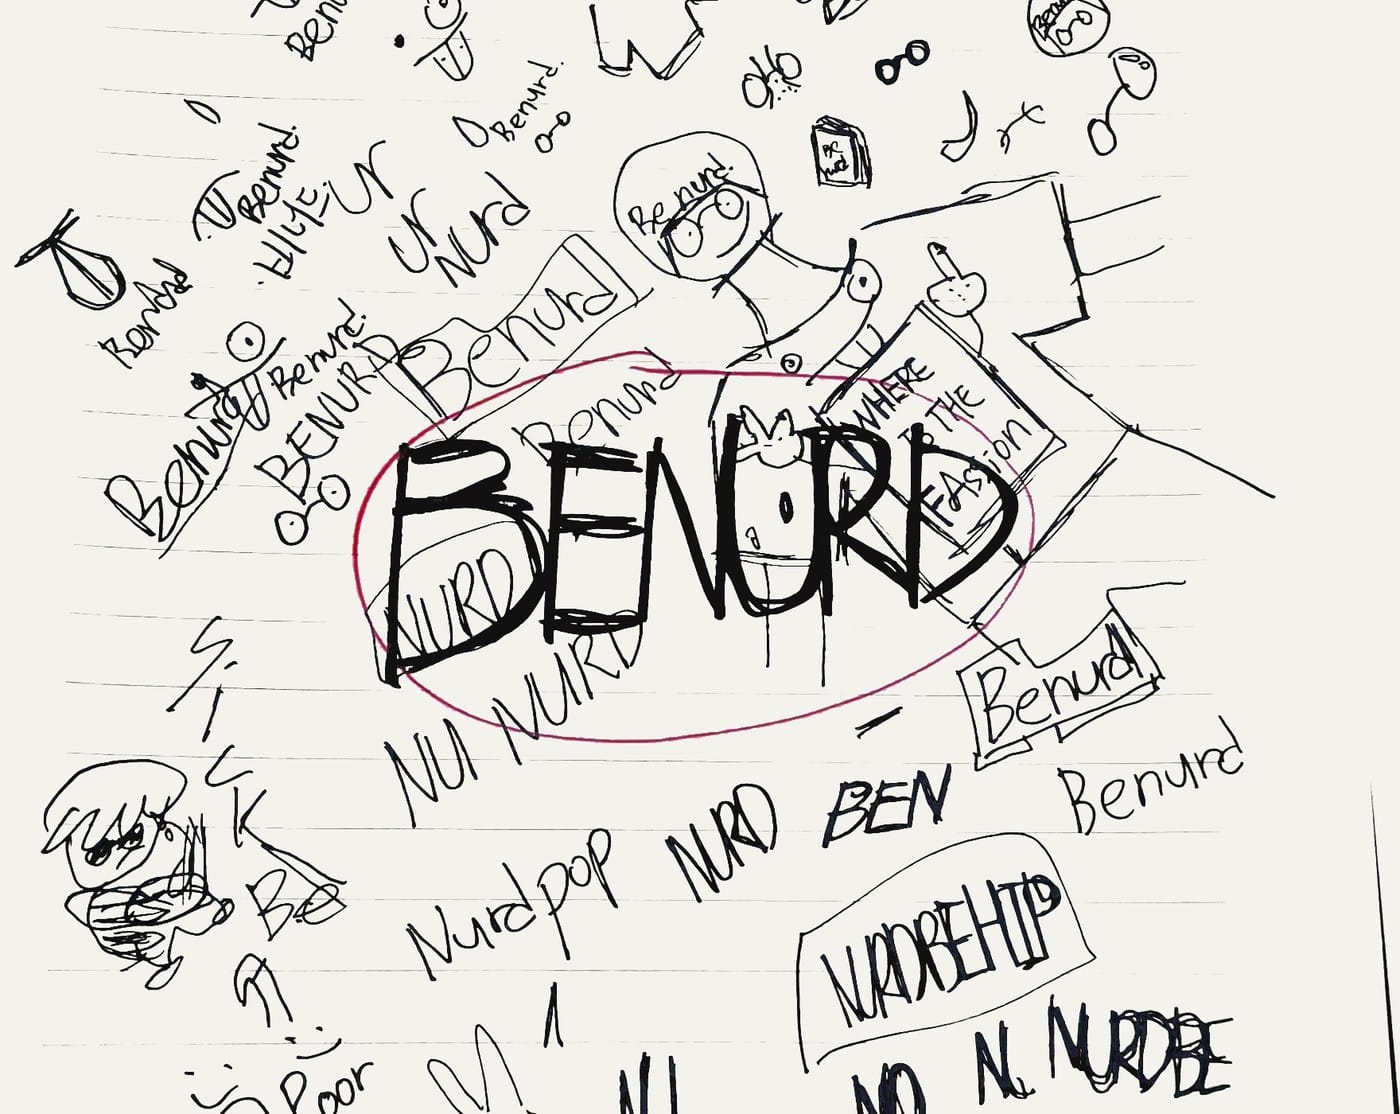 Benurd
Benurd.
Benurd.
Ur
Ur
Nurd
BE
Nurd
Benurd.
Benurd
Benurd.
BENURD
Benurd
Benurd
Benurd
WHERE
IS THE
FASSion
BENURD
NURD
NU NURD
Benurd
Benurd
SICK
Be
BEN
NURD
Nurdpop
NURDBEHIP
NURDBE
N
NU
NO
Poor